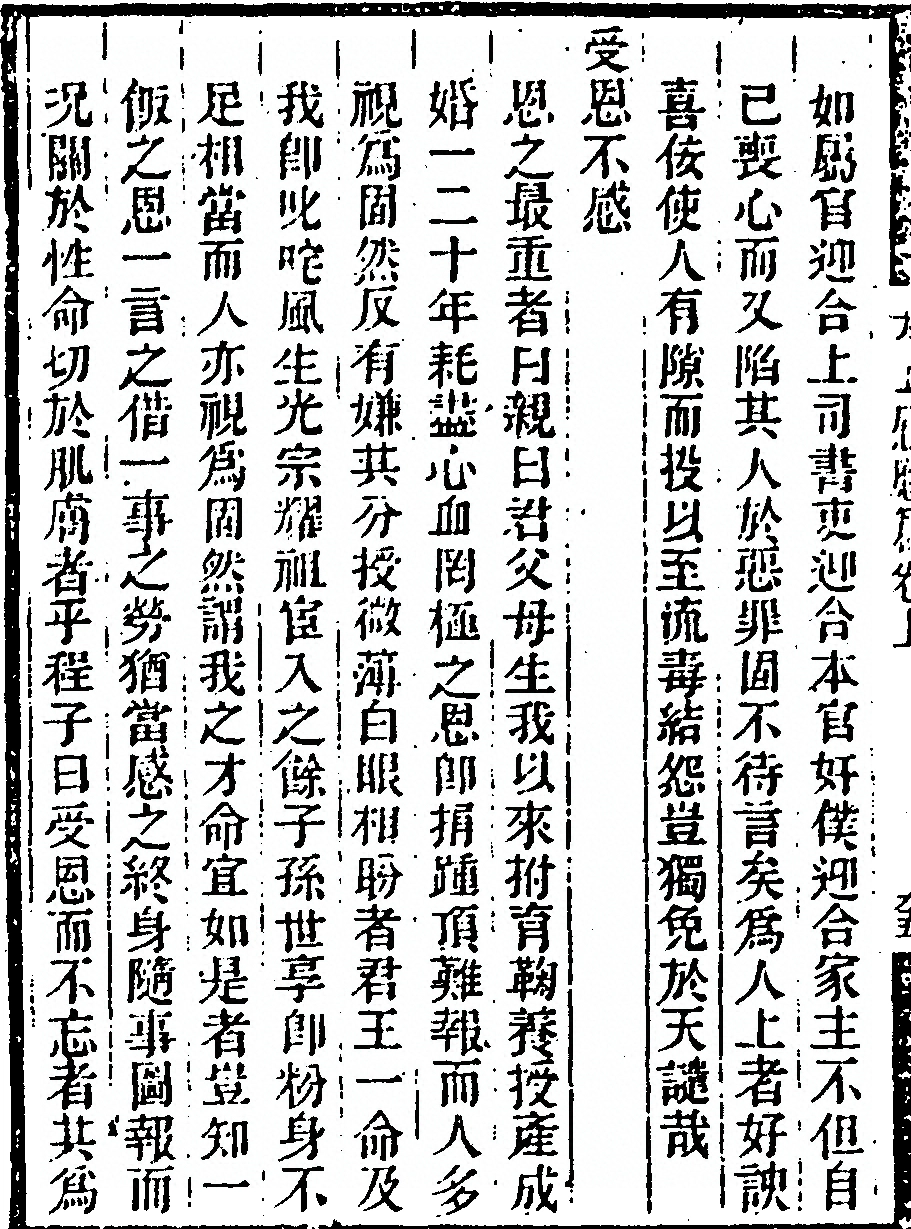 如屬官迎合上司書吏迎合本官奸僕迎合家主不但自
已喪心而又陷其人於惡罪固不待言矣爲人上者好諛
喜佞使人有隙而投以至流毒結怨豈獨免於天譴哉
受恩不感
恩之最重者曰親曰君父母生我以來拊育鞠養授產成
婚一二十年耗盡心血罔極之恩卽捐踵頂難報而人多
視爲固然反有嫌其分授微薄白眼相盼者君王一命及
我卽叱咤風生光宗耀祖宦入之餘子孫世享卽粉身不
足相當而人亦視爲固然謂我之才命宜如是者豈知一
飯之恩一言之借一事之勞猶當感之終身隨事圖報而
况關於性命切於肌膚者乎程子曰受恩而不忘者其爲